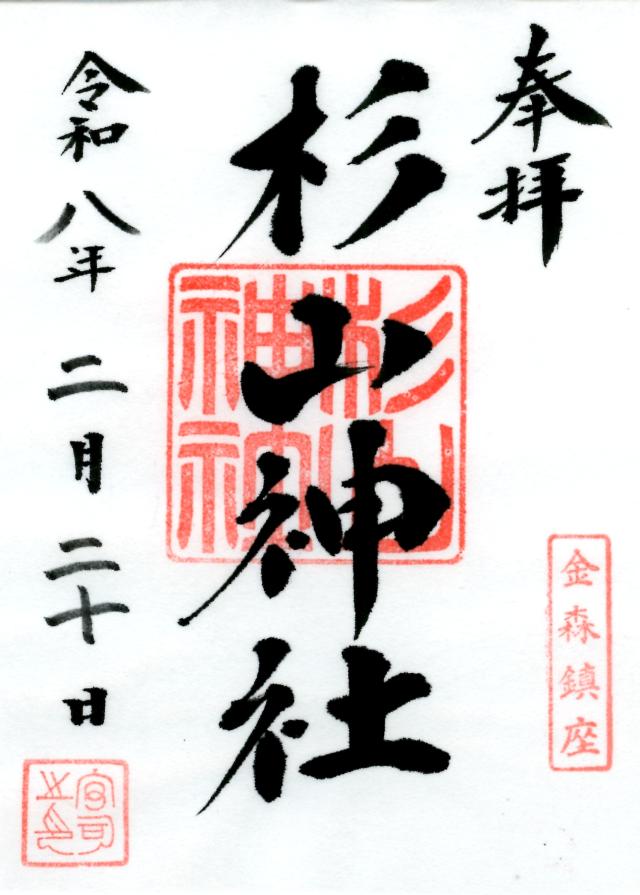 奉拝
金森鎮座
杉山神社
令和八年二月二十日
宮司之印